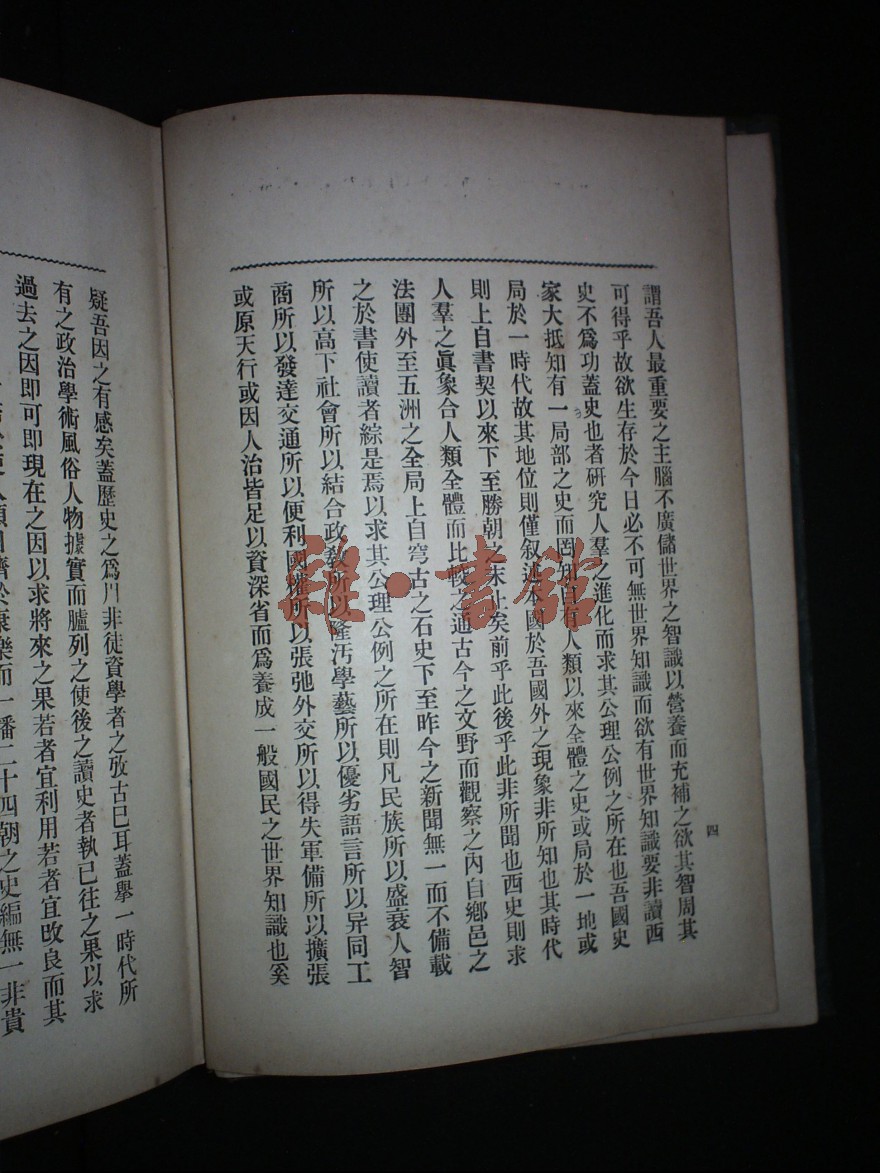 謂吾人最重要之主腦不廣儲世界之智識以營養而充補之欲其智周其
可得乎故欲生存於今日必不可無世界知識而欲有世界知識要非讀西
史不爲功蓋史也者研究人羣之進化而求其公理公例之所在也吾國史
家大抵知有一局部之史而罔知自有人類以來全體之史或局於一地或
局於一時代故其地位則僅叙述本國於吾國外之現象非所知也其時代
則上自書契以來下至勝朝之末止矣前乎此後乎此非所聞也西史則求
人羣之眞象合人類全體而比較之通古今之文野而觀察之內自鄉邑之
法團外至五洲之全局上自穹古之石史下至昨今之新聞無一而不備載
之於書使讀者綜是焉以求其公理公例之所在則凡民族所以盛衰人智
所以高下社會所以結合政敎所以隆汚學藝所以優劣語言所以异同工
商所以發達交通所以便利國權所以張弛外交所以得失軍備所以擴張
或原天行或因人治皆足以資深省而爲養成一般國民之世界知識也奚
四
疑吾因之有感矣蓋歷史之爲用非徒資學者之攷古已耳蓋擧一時代所
有之政治學術風俗人物據實而臚列之使後之讀史者執已往之果以求
過去之因即可即現在之因以求將來之果若者宜利用若者宜改良而其
人類日躋於康樂而一繙二十四朝之史編無一非貴
雜·書館